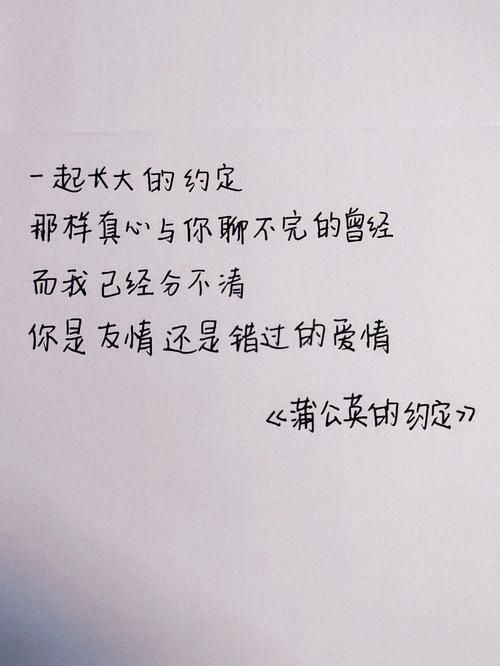 一起长大的约定
那样真心与你聊不完的曾经
而我已经分不清
你是友情还是错过的爱情
《蒲公英的约定》